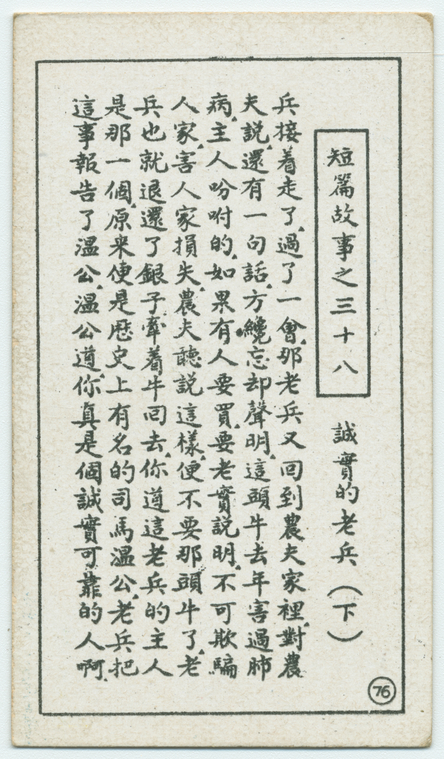 短篇故事之三十八
誠實的老兵（下）
兵接着走了，過了一會，那老兵又回到農夫家裡，對農
夫説，還有一句話，方纔忘却聲明，這頭牛去年害過肺
病，主人吩咐的，如果有人要買，要老實説明，不可欺騙
人家，害人家損失，農夫聽説這樣，便不要那頭牛了，老
兵也就退還了銀子，牽着牛回去，你道這老兵的主人
是那一個，原來便是歷史上有名的司馬溫公，老兵把
這事報告了溫公，溫公道，你真是個誠實可靠的人啊．
76